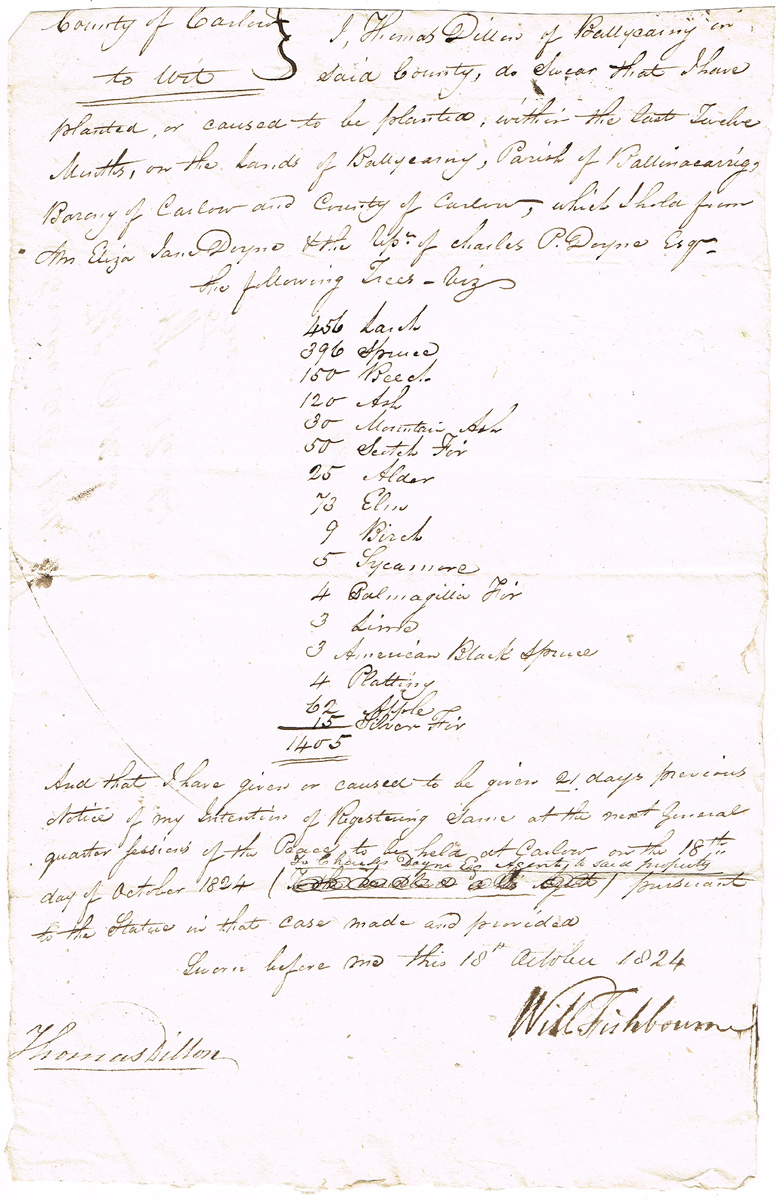 County of Carlow
to Wit
I, Thomas Dillon of Ballycarny in
said County, do Swear that I have
planted, or caused to be planted, within the last Twelve
Months, on the Lands of Ballycarny, Parish of Ballinacarrig,
Barony of Carlow and County of Carlow, which I hold from
Mrs Eliza Jane Doyne & the of Charles P. Doyne Esqr
the following Trees - Viz
456 Larch
396 Spruce
150 Beech
120 Ash
30 Mountain Ash
50 Scotch Fir
25 Alder
73 Elm
9 Birch
5 Sycamore
4 Balmagilla Fir
3 Lime
3 American Black Spruce
4 Platting
62 Apple
15 Silver Fir
1405
And that I have given or caused to be given 21 days previous
Notice of my Intention of Registering Same at the next General
quarter Sessions of the Peace to be held at Carlow on the 18th
To Charles Doyne Esq Agent to said property
day of October 1824 ( ) pursuant
to the Statue in that case made and provided
Sworn before me this 18th October 1824
Will Fishbourne
Thomas Dillon